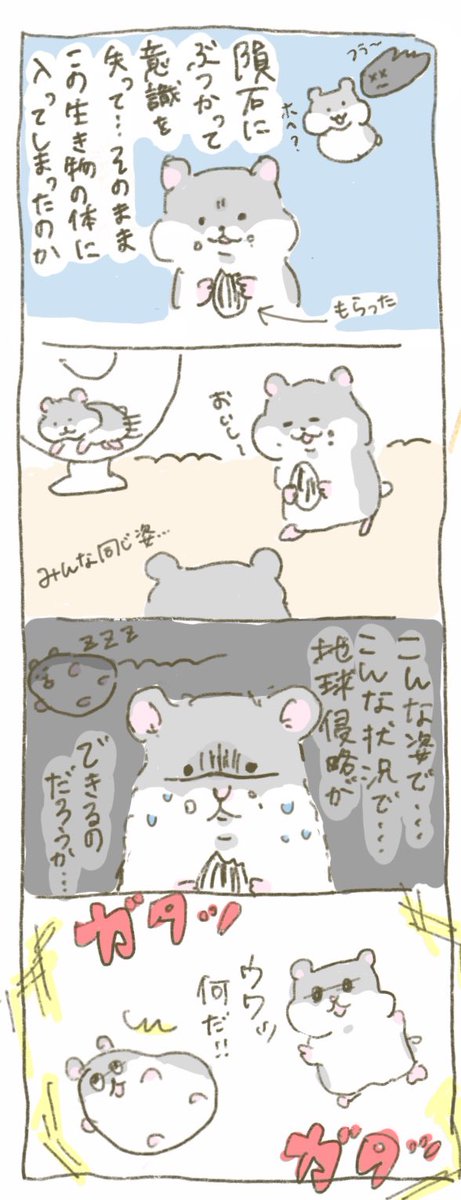 隕石に
ぶつかって
意識を
失って…そのまま
この生き物の体に
入ってしまったのか
フラ〜
ホヘ?
もらった
おいし〜
みんな同じ姿…
zzz
こんな姿で…
こんな状況で…
地球侵略が
できるの
だろうか…
ガタッ
ウワッ
何だ!!
ガタッ